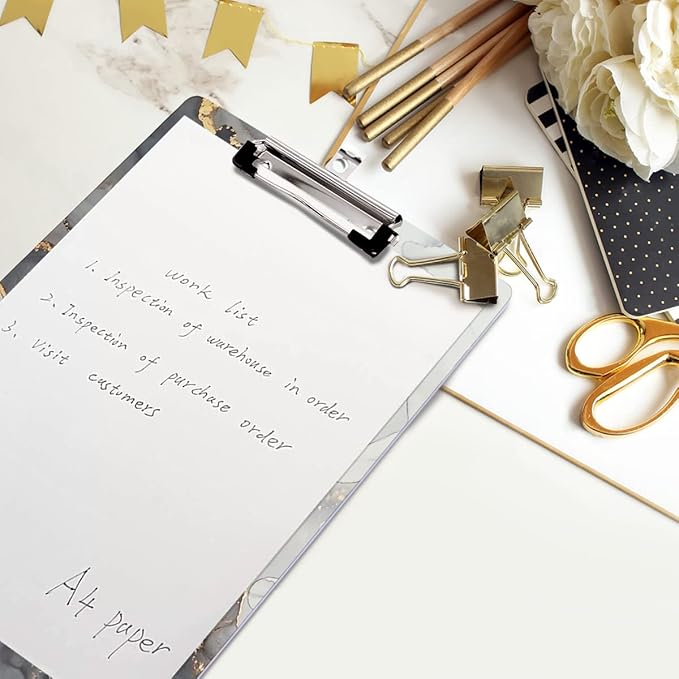 Work list
1. Inspection of warehouse in order
2. Inspection of purchase order
3. Visit custumers
A4 paper